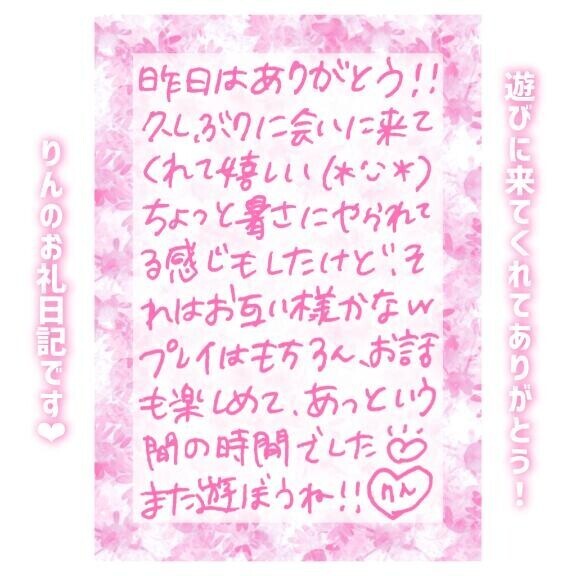 遊びに来てくれてありがとう！
昨日はありがとう!!
久しぶりに会いに来て
くれて嬉しい(*'ω'*)
ちょっと暑さにやられて
る感じもしたけど、そ
れはお互い様かなw
プレイはもちろん、お話
も楽しめて、あっという
間の時間でした
また遊ぼうね!! りん
りんのお礼日記です♥